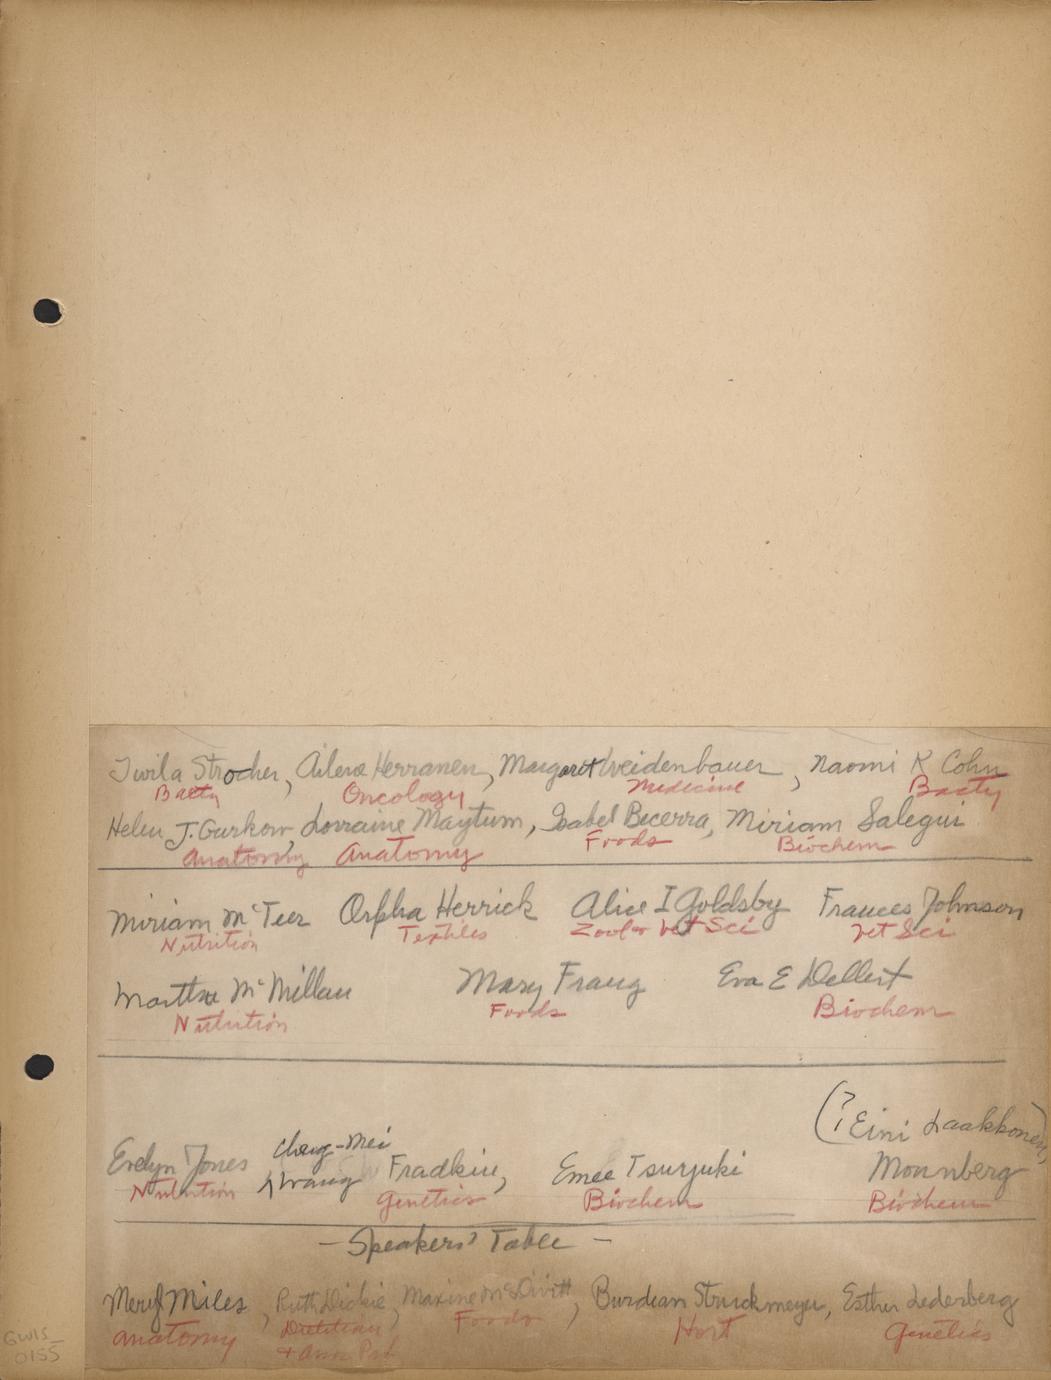 Twila Strocher, Ailene Herranen, Margaret Weidenbauer, Naomi K Cohn
Bacty Oncology Medicine Bacty
Helen J. Gurkow, Lorraine Maytum, Isabel Becerra, Miriam Salegui
Anatomy Anatomy Foods Biochem
Miriam McTeer Orpha Herrick Alice I Goldsby Frances Johnson
Nutrition Textiles Vet Sci Vet Sci
Martha McMillan Mary Eva E Dellert
Nutrition Foods Biochem
(? Eini Laakkonen)
Cheng-Mei
Evelyn Jones Fradkin, Emee Tsuzuki Monnberg
Nutrition Genetics Biochem Biochem
- Speakers' Table -
Meryl Miles, Ruth Dickie, Maxine McDivitt, Burdean Struckmeyer, Esther Lederberg
Anatomy Foods Hort Genetics
GWIS_
0155